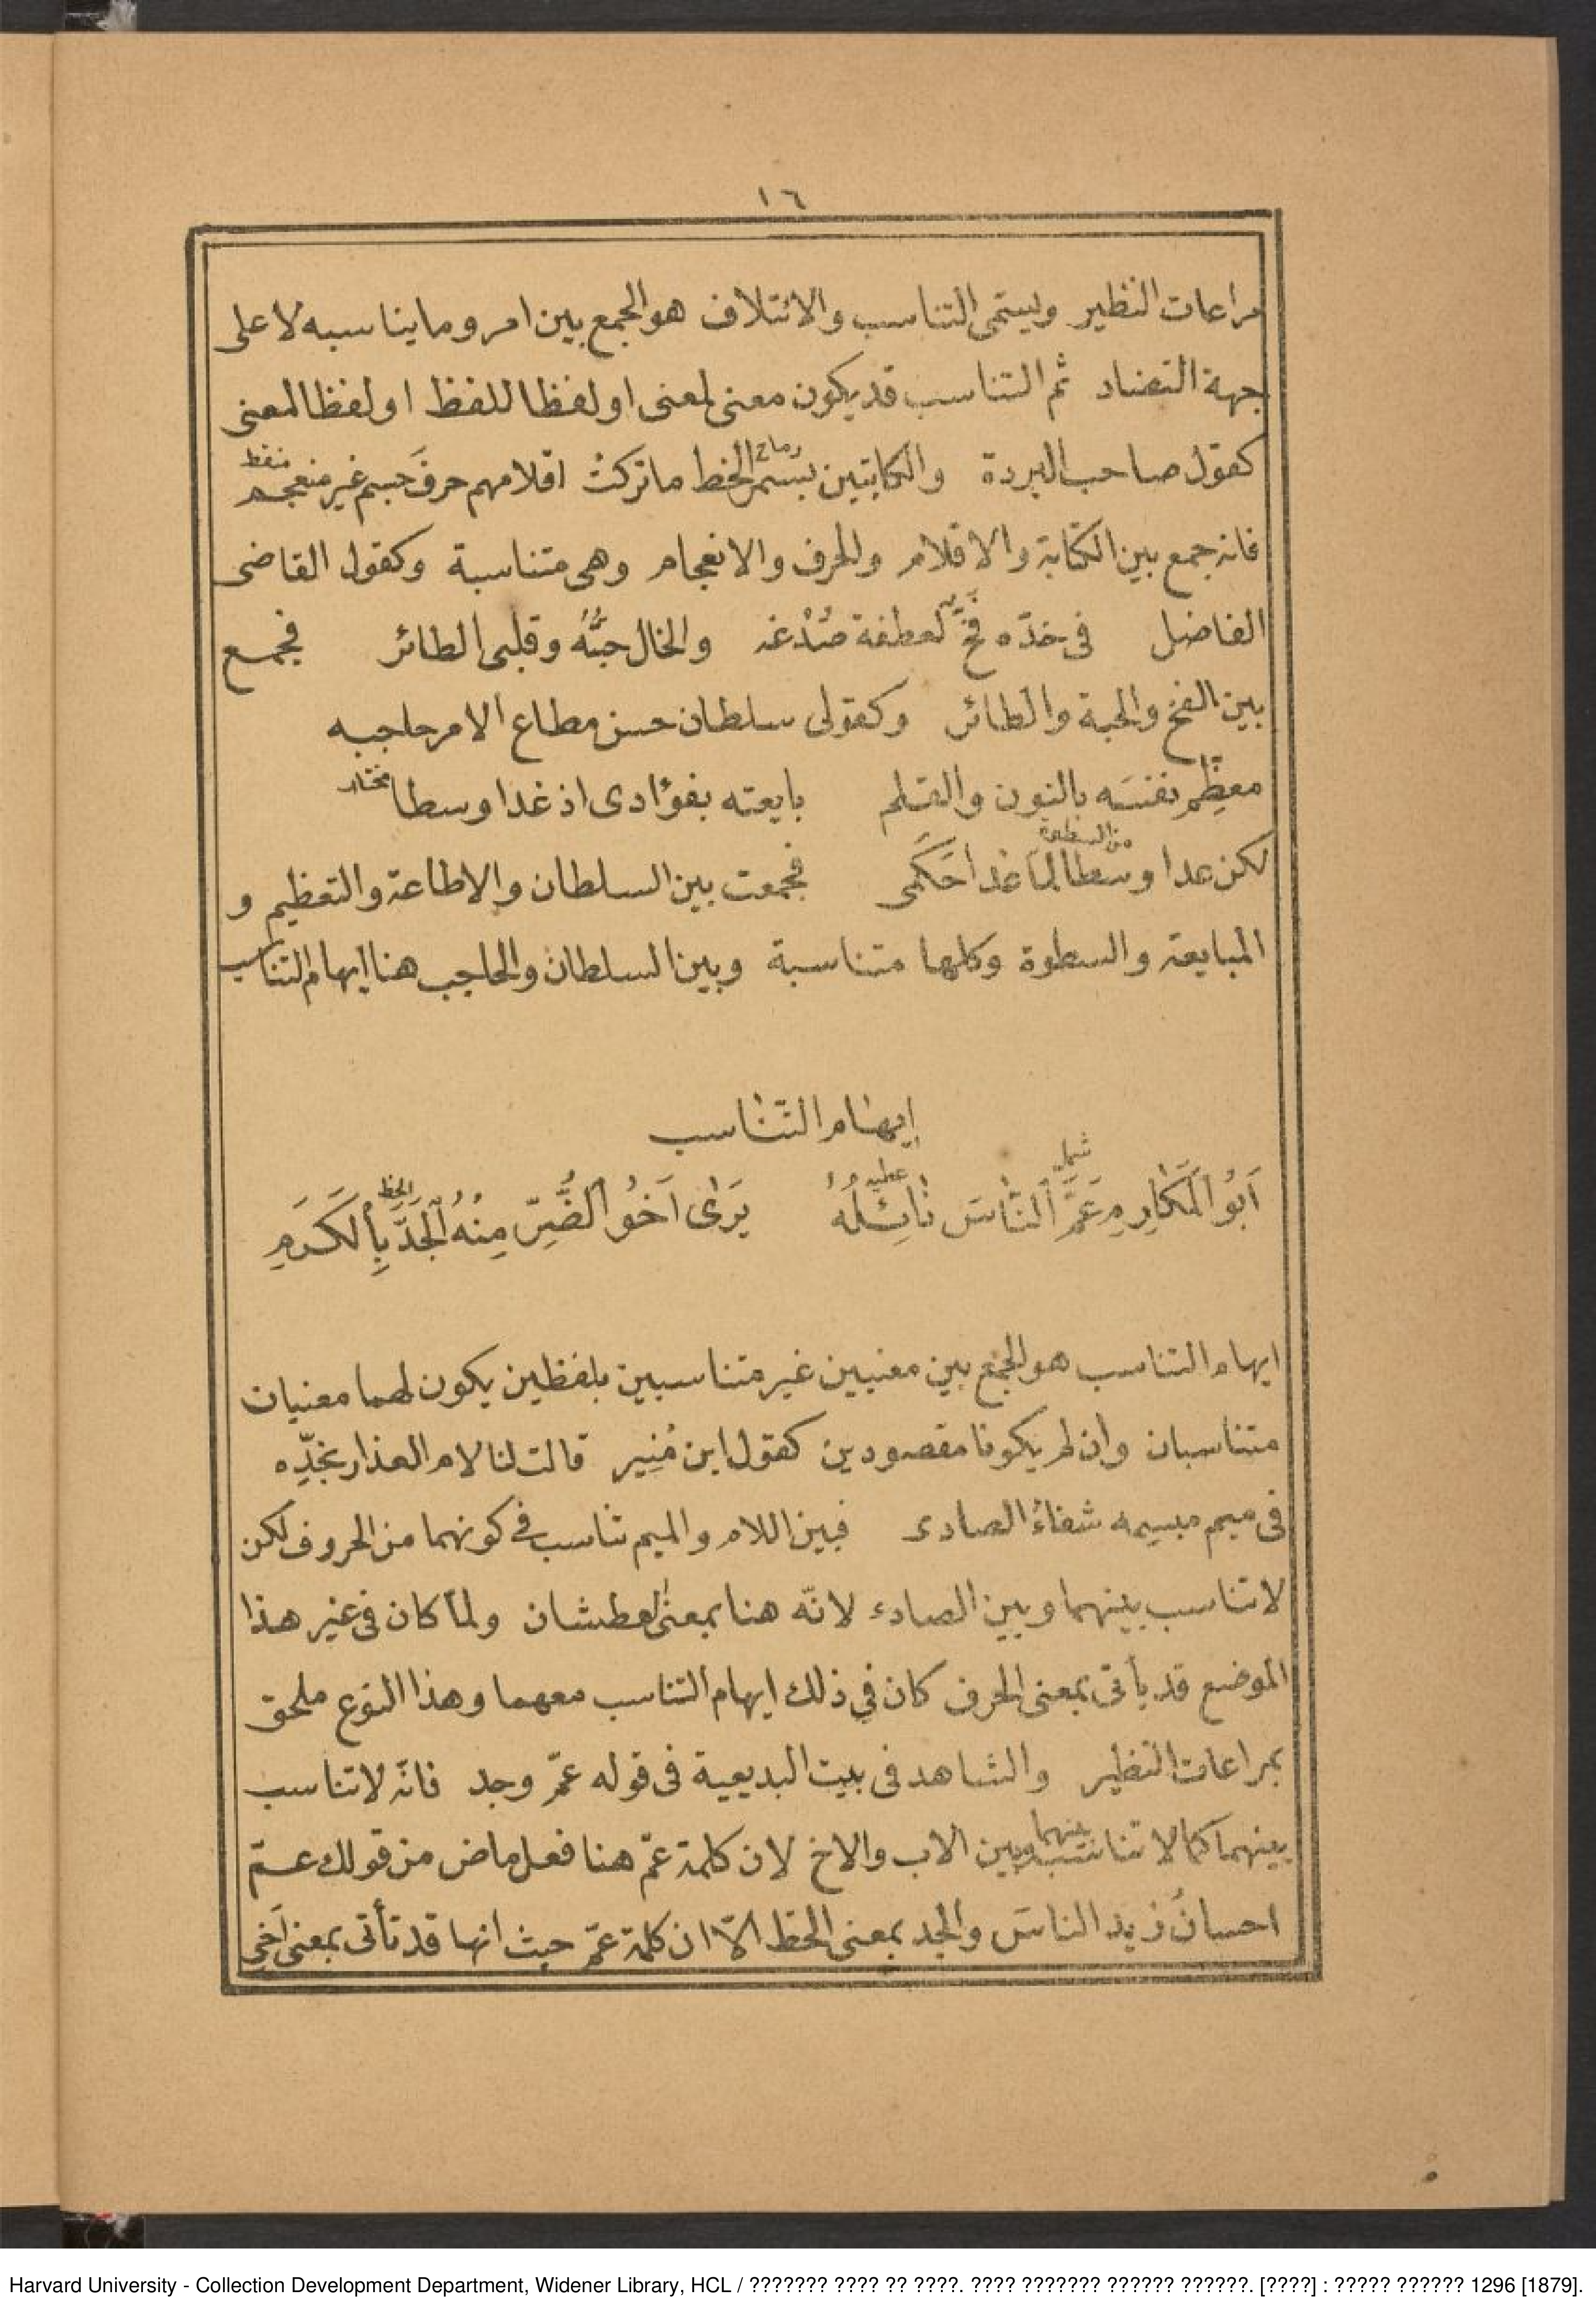 ١٦
مراعات النظير ويسمّى التناسب والائتلاف هو الجمع بين امر وما يناسبه لا على
جهة التضاد ثم التناسب قد يكون معنى لمعنى او لفظا للفظ او لفظا لمعنى
رماح منقط
كقول صاحب البردة والكاتبين بسمر الخط ما تركتْ اقلامهم حرفَ جسم غير منعجم
فانه جمع بين الكتابة والاقلام والحرف والانعجام وهى متناسبة وكقول القاضى
الفاضل فى خدّه فخّ لعطفة صُدْغه والخال حبُّهُ وقلبى الطائر فجمع
بين الفخ والحبة والطائر وكقولى سلطان حسن مطاع الامر حاجبه
معظِم نفسَه بالنون والقلم بايعته بفؤادى اذ غدا وسطا مختار
من السطوة
لكن عدا وسطا لما غدا حَكَمى فجمعت بين السلطان والاطاعة والتعظيم و
المبايعة والسطوة وكلها متناسبة وبين السلطان والحاجب هنا ايهام التناسب
إيهام التناسب
شمل عطيه الحظ
اَبُو الْمَكَارِمِ عَمَّ النَّاسَ نَائِلُهُ يَرٰى اَخُو الضُّرِّ مِنْهُ الْجَدَّ بِالْكَرَمِ
ايهام التناسب هو الجمع بين معنيين غير متناسبين بلفظين يكون لهما معنيان
متناسبان وان لم يكونا مقصودين كقول ابن مُنِير قالت لنا لام العذار بخدِّه
فى ميم مبسِمه شفاءُ الصادى فبين اللام والميم تناسب فى كونهما من الحروف لكن
لا تناسب بينهما وبين الصادى لانّه هنا بمعنى العطشان ولمّا كان فى غير هذا
الموضع قد يأتى بمعنى الحرف كان في ذلك ايهام التناسب معهما وهذا النوع ملحق
بمراعات النظير والشاهد فى بيت البديعية فى قوله عمّ وجد فانّه لا تناسب
بينهما كما لا تناسب بينهما وبين الاب والاخ لان كلمة عمّ هنا فعل ماض من قولك عمّ
احسانُ زيد الناسَ والجد بمعنى الحظ الّا ان كلمة عمّ حيث انها قد تأتى بمعنى اَخى